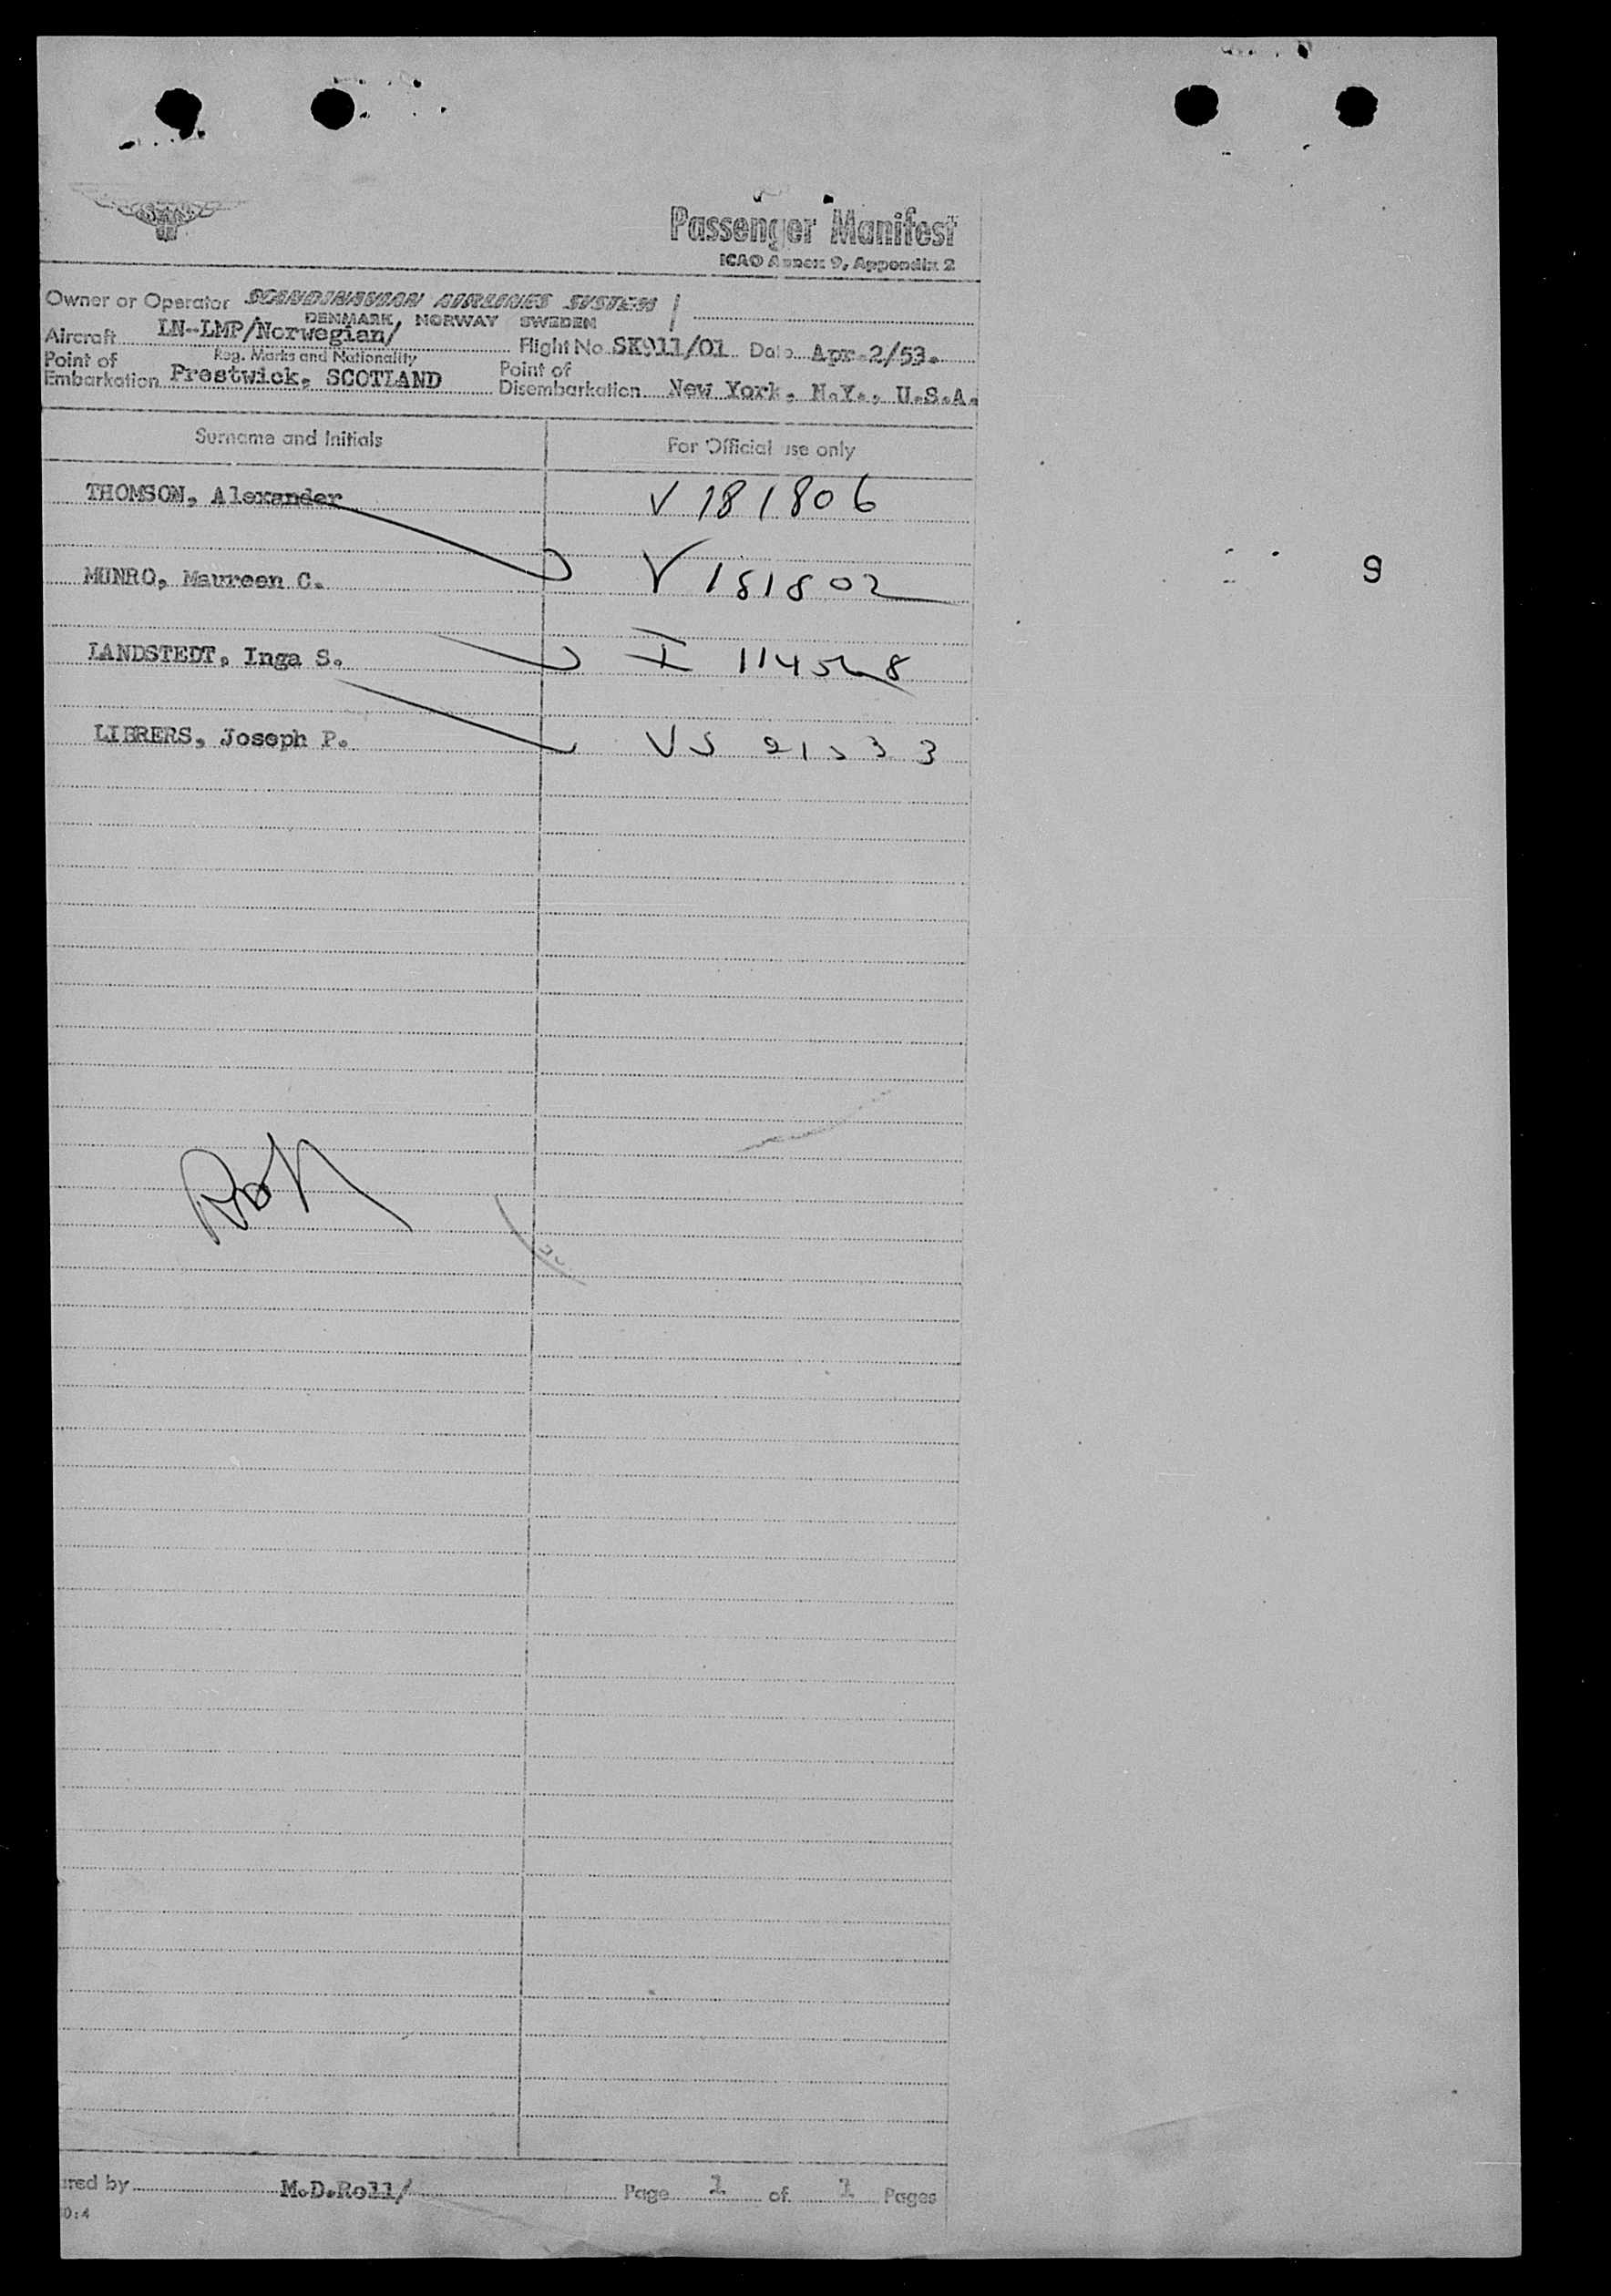 Passenger Manifest
ICAO Annex 9, Appendix 2
Owner or Operator SCANDINAVIAN AIRLINES SYSTEM
DENMARK, NORWAY SWEDEN
Aircraft LN-LMP/Norwegian/ Flight No. SK911/01 Date Apr. 2/53.
Reg. Marks and Nationality
Point of Embarkation Prestwick, SCOTLAND Point of Disembarkation New York, N.Y., U.S.A.
Surname and Initials For Official use only
THOMSON, Alexander V 181806
MUNRO, Maureen C. V 181802
LANDSTEDT, Inga S. I 1145
LIBRERS, Joseph P. VS
9
Roll
ared by M.D.Roll/ Page 1 of 1 Pages
0:4